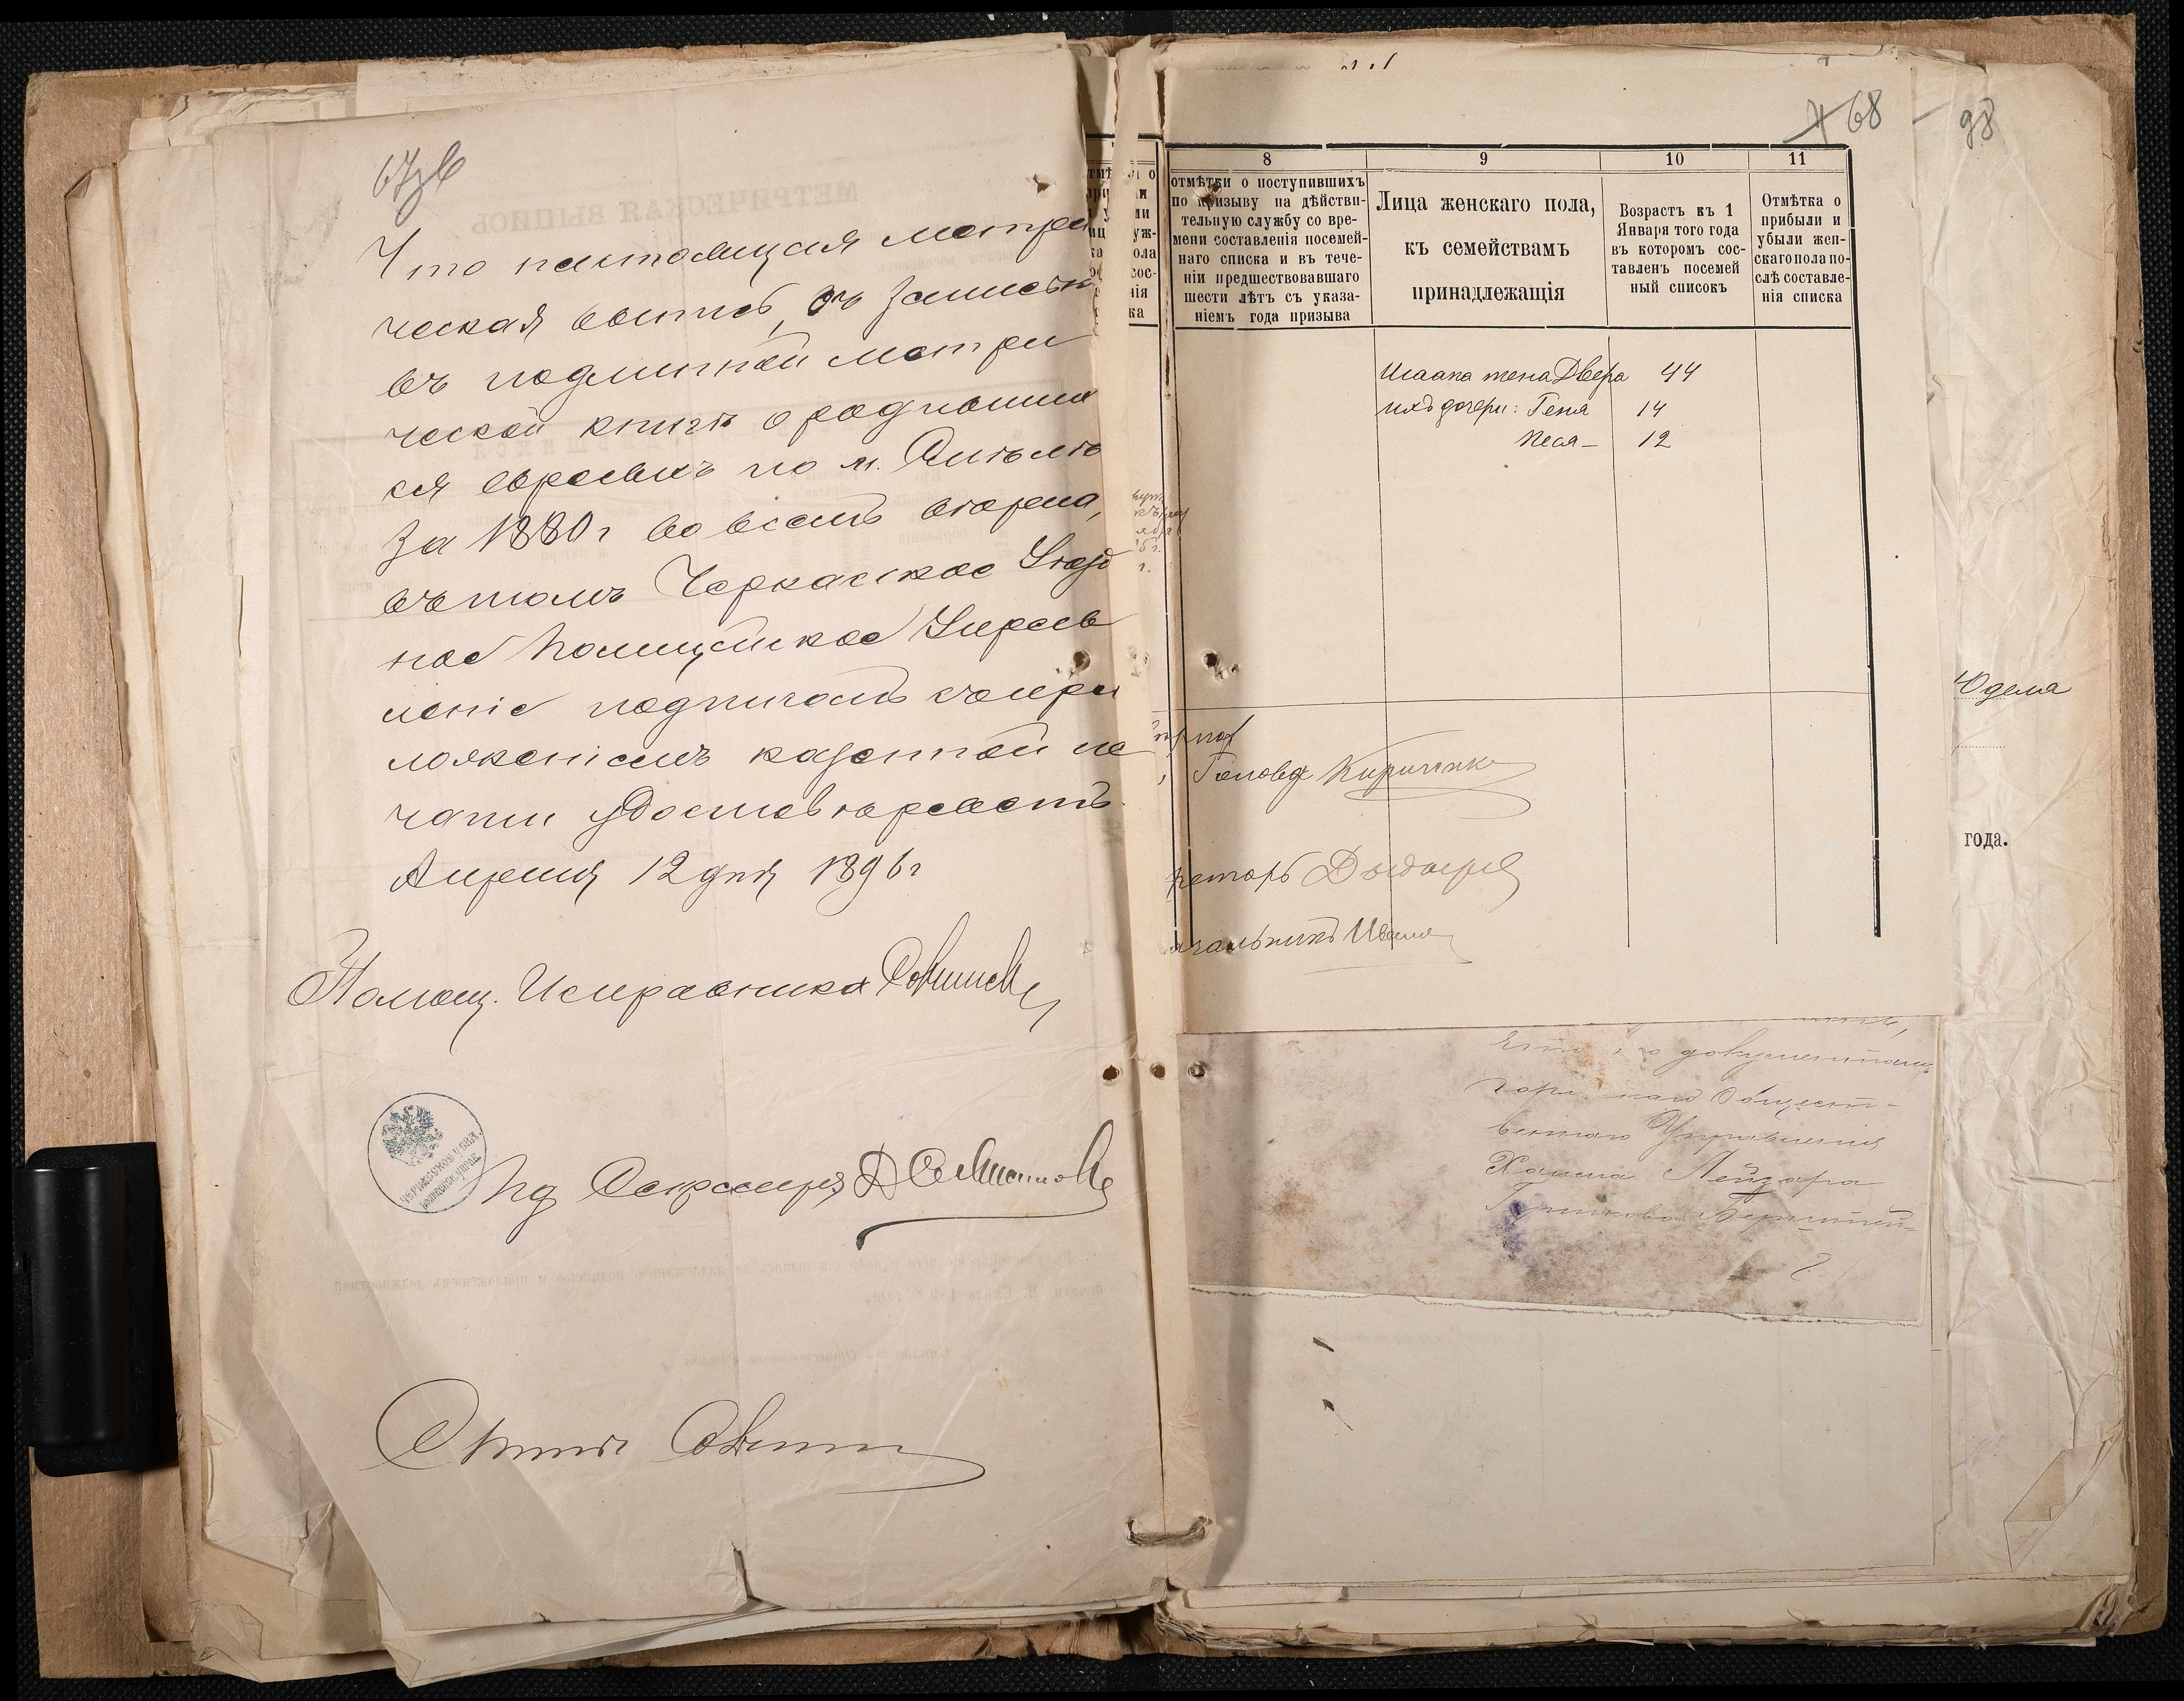 67об
Что настоящая метри
ческая выпись съ записью
въ подлинной метри
ческой книгѣ о родивших
ся евреяхъ по м. Смѣлѣ
за 1880 г во всемъ вѣрна,
въ томъ Черкасское Уѣзд
ное Полицейское Управ
леніе подписомъ съ при
ложеніемъ казенной пе
чати удостовѣряетъ.
Апрѣля 12 дня 1896 г
Помощ. Исправника
ЧЕРКАССКОЕ УѢЗД.
ПОЛИЦЕЙСК. УПРАВ.
Ид Секретаря
68
98
8
9
10
11
отмѣтки о поступившихъ
по призыву на дѣйстви-
тельную службу со вре-
мени составленія посемей-
наго списка и въ тече-
ніи предшествовавшаго
шести лѣтъ съ указа-
ніемъ года призыва
Лица женскаго пола,
къ семействамъ
принадлежащія
Возрастъ къ 1
Января того года
въ котором сос-
тавленъ посемей
ный списокъ
Отмѣтка о
прибыли и
убыли жен-
скаго пола по-
слѣ составле-
нія списка
Исаака жена Двера 44
ихъ дочери: Геня 14
Песя 12
Голова Кириченко
ретарь
ачальникъ
года.
документамъ
Общест-
веннаго Управленія
Хаима Лейзара